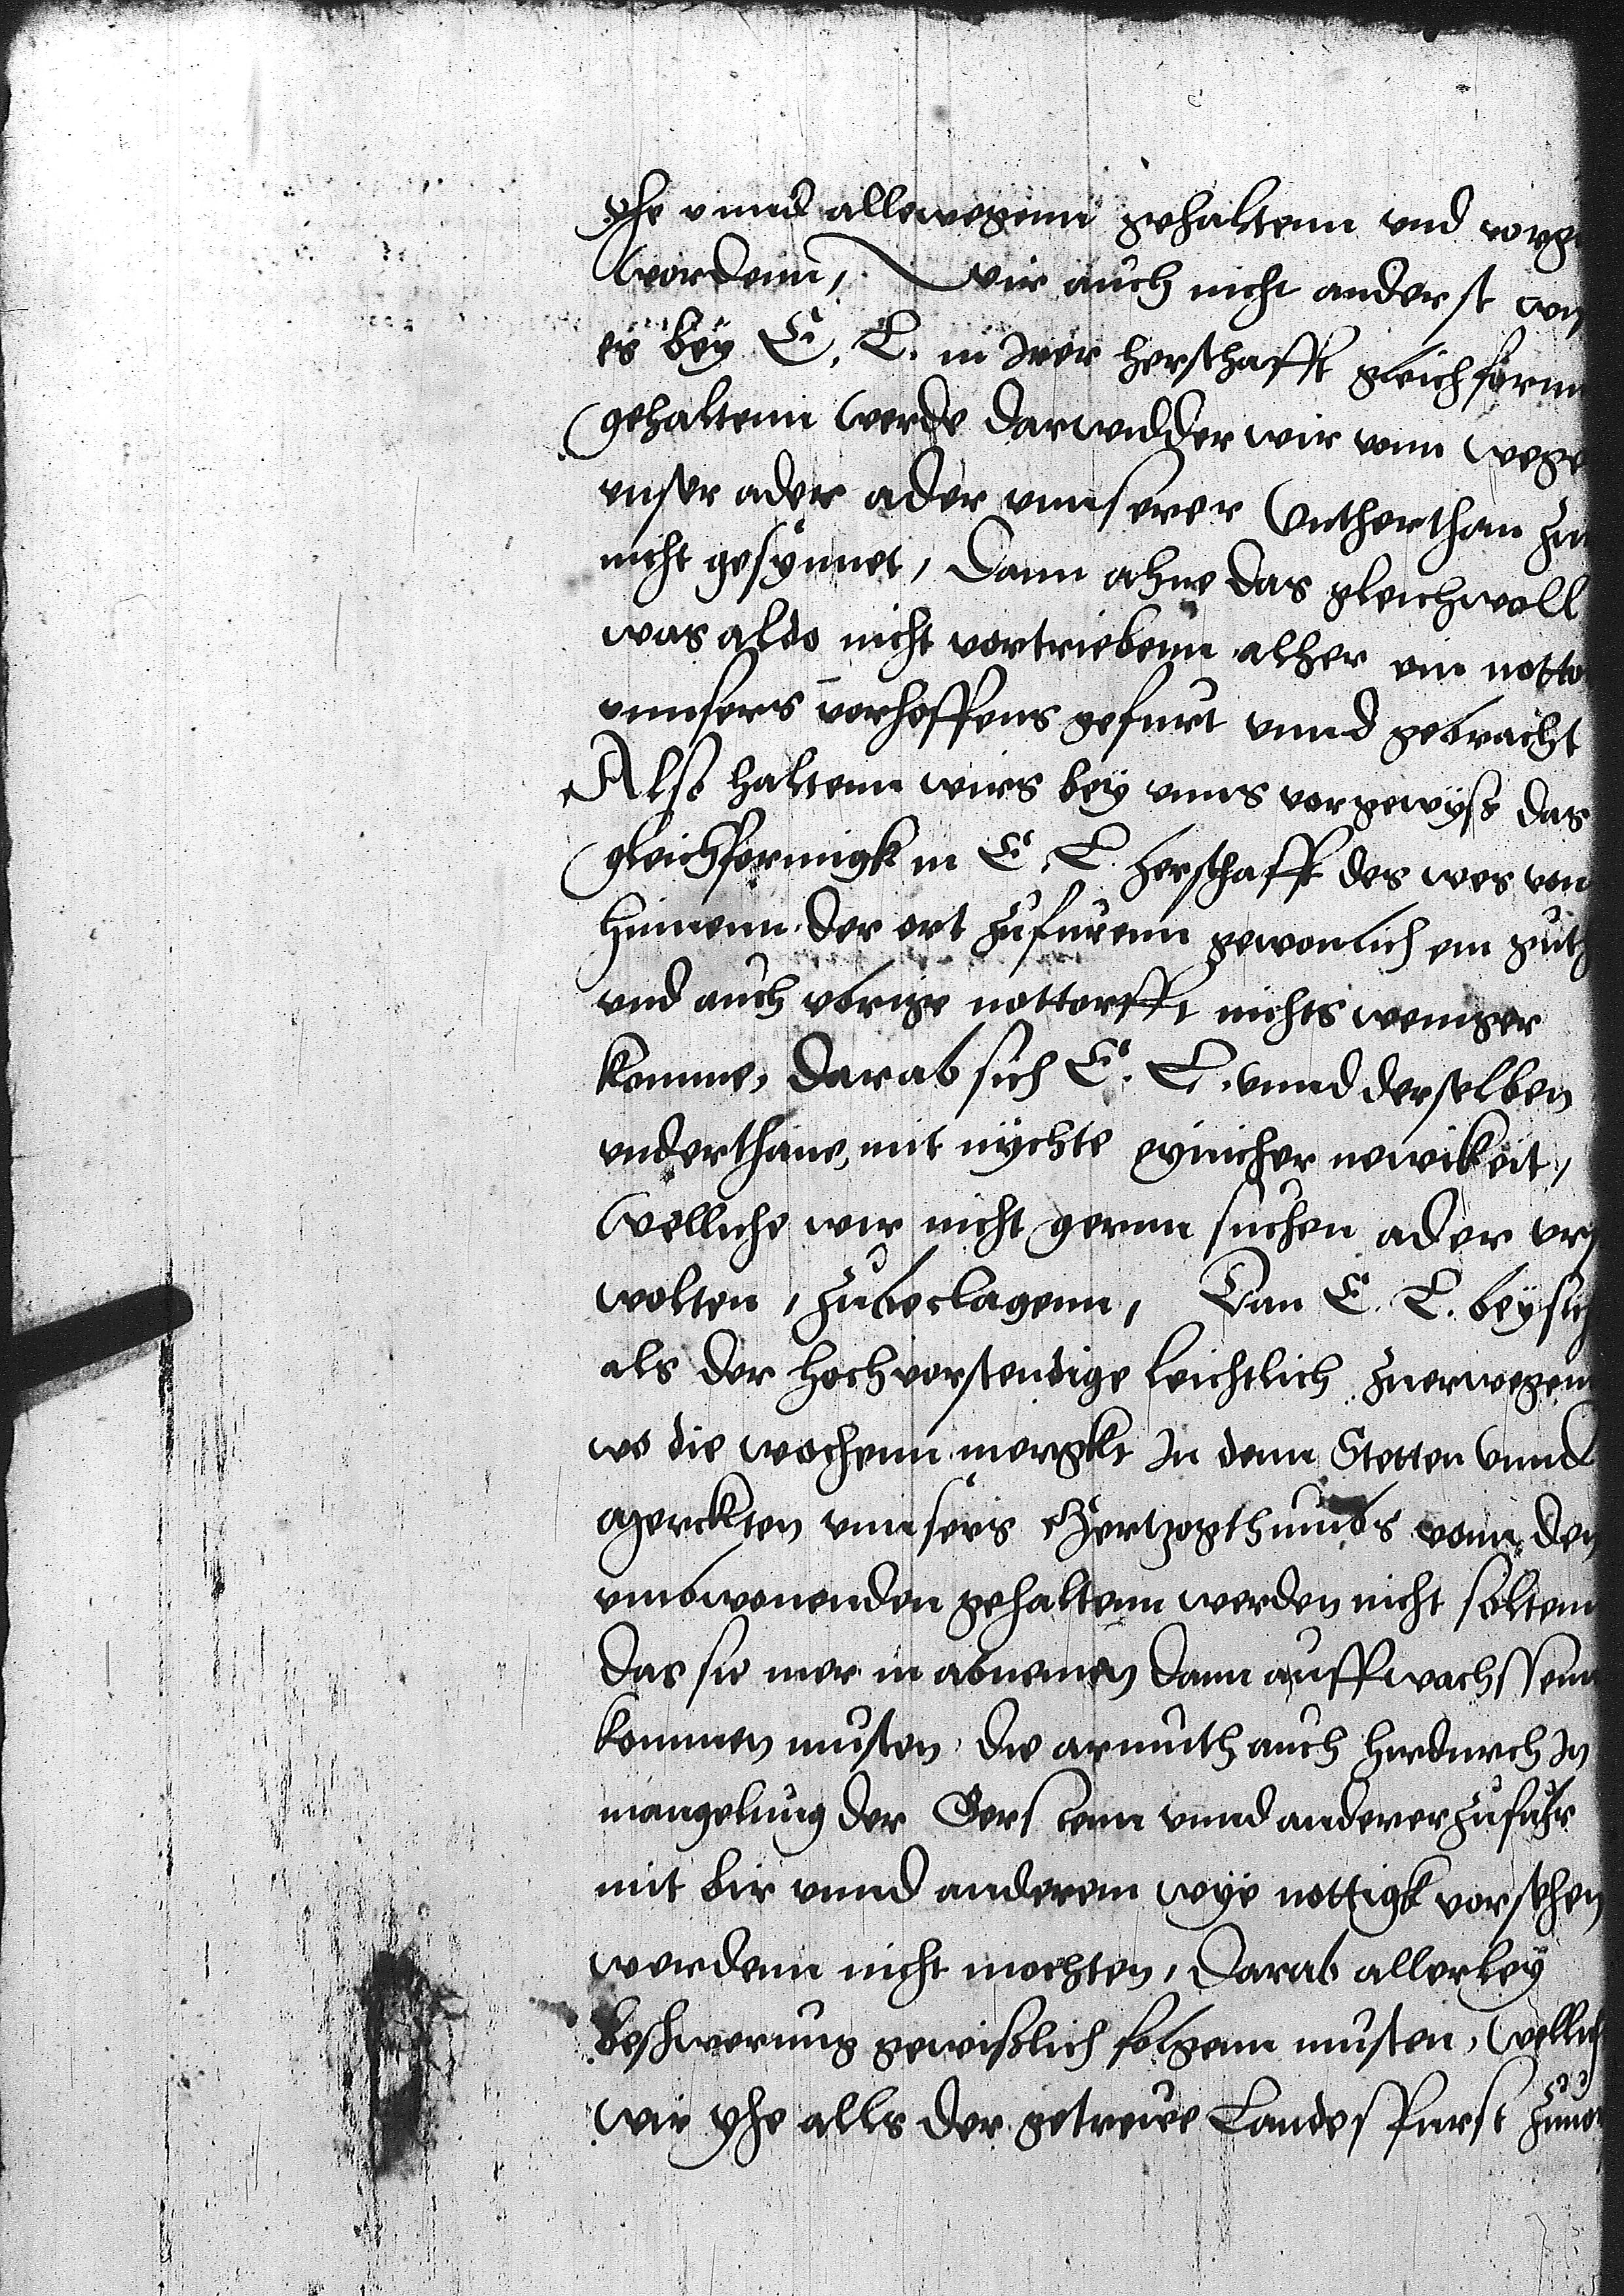 yhe vnnd allewegenn gehaltenn vnd vorge
wordenn, wir auch nicht anderst wy
es bey E. L. in irer herschafft gleichform
gehaltenn werde darwidder wir vonn wege
vnser ader ader vnnserer Vntherthan zu
nicht gesynnet, Dann ahne das gleichwoll
was aldo nicht vortriebenn alher ein notto
vnnsers vorhoffens gefurt vnnd gebracht
Also haltenn wirs bey vnns vorgewyß das
gleichformigk in E. L. herschafft des wes von
hinnenn der ort zufurenn gewonlich ein gut
vnd auch vbrige nottorfft nichts weniger
komme, Darab sich E. L. vnnd derselben
vnderthane, mit nychte eynicher newikeit,
Welliche wir nicht gernn suchen ader vrs
wolten, zubeclagenn, Dan E. L. bey sich
als der hochvorstendige leichtlich zuerwegenn
wo die wochenn merckt In denn Stetten vnnd
Merckten vnnsers Hertzogthumbs vonn den
vmbwonenden gehaltenn werden nicht soltenn
das sie mer in abnemen dann auffwachssenn
kommen musten, die armuth auch hirdurch In
mangelung der Gerstenn vnnd anderer zufuhr
mit bir vnnd anderem wye nottigk vorsehen
werdenn nicht mochten, Darab allerley
Beschwerung gewißlich folgenn musten, Wellich
wir yhe alls der getrewe Landesfurst